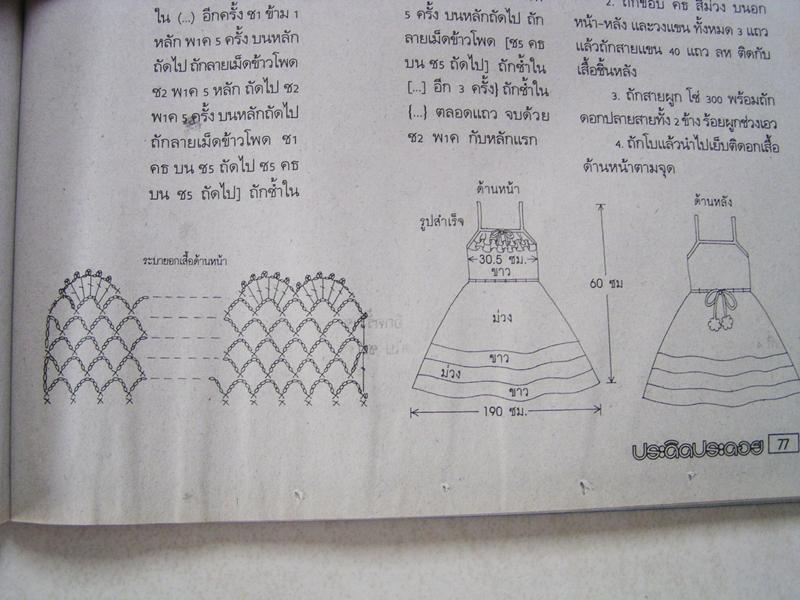 ใน (...) อีกครั้ง ซ1 ข้าม 1
หลัก พ1ค 5 ครั้ง บนหลัก
ถัดไป ถักลายเม็ดข้าวโพด
ซ2 พ1ค 5 หลัก ถัดไป ซ2
พ1ค 5 ครั้ง บนหลักถัดไป
ถักลายเม็ดข้าวโพด ซ1
คธ บน ซ5 ถัดไป ซ5 คธ
บน ซ5 ถัดไป] ถักซ้ำใน
5 ครั้ง บนหลักถัดไป ถัก
ลายเม็ดข้าวโพด [ซ5 คธ
บน ซ5 ถัดไป] ถักซ้ำใน
[...] อีก 3 ครั้ง} ถักซ้ำใน
{...} ตลอดแถว จบด้วย
ซ2 พ1ค กับหลักแรก
2. ถักขอบ คธ สีม่วง บนอก
หน้า-หลัง และวงแขน ทั้งหมด 3 แถว
แล้วถักสายแขน 40 แถว ลห ติดกับ
เสื้อชิ้นหลัง
3. ถักสายผูก โซ่ 300 พร้อมถัก
ดอกปลายสายทั้ง 2 ข้าง ร้อยผูกช่วงเอว
4. ถักโบแล้วนำไปเย็บติดอกเสื้อ
ด้านหน้าตามจุด
ระบายอกเสื้อด้านหน้า
รูปสำเร็จ
ด้านหน้า
30.5 ซม.
ขาว
ม่วง
ขาว
ม่วง
ขาว
190 ซม.
60 ซม
ด้านหลัง
ประดิดประดอย 77